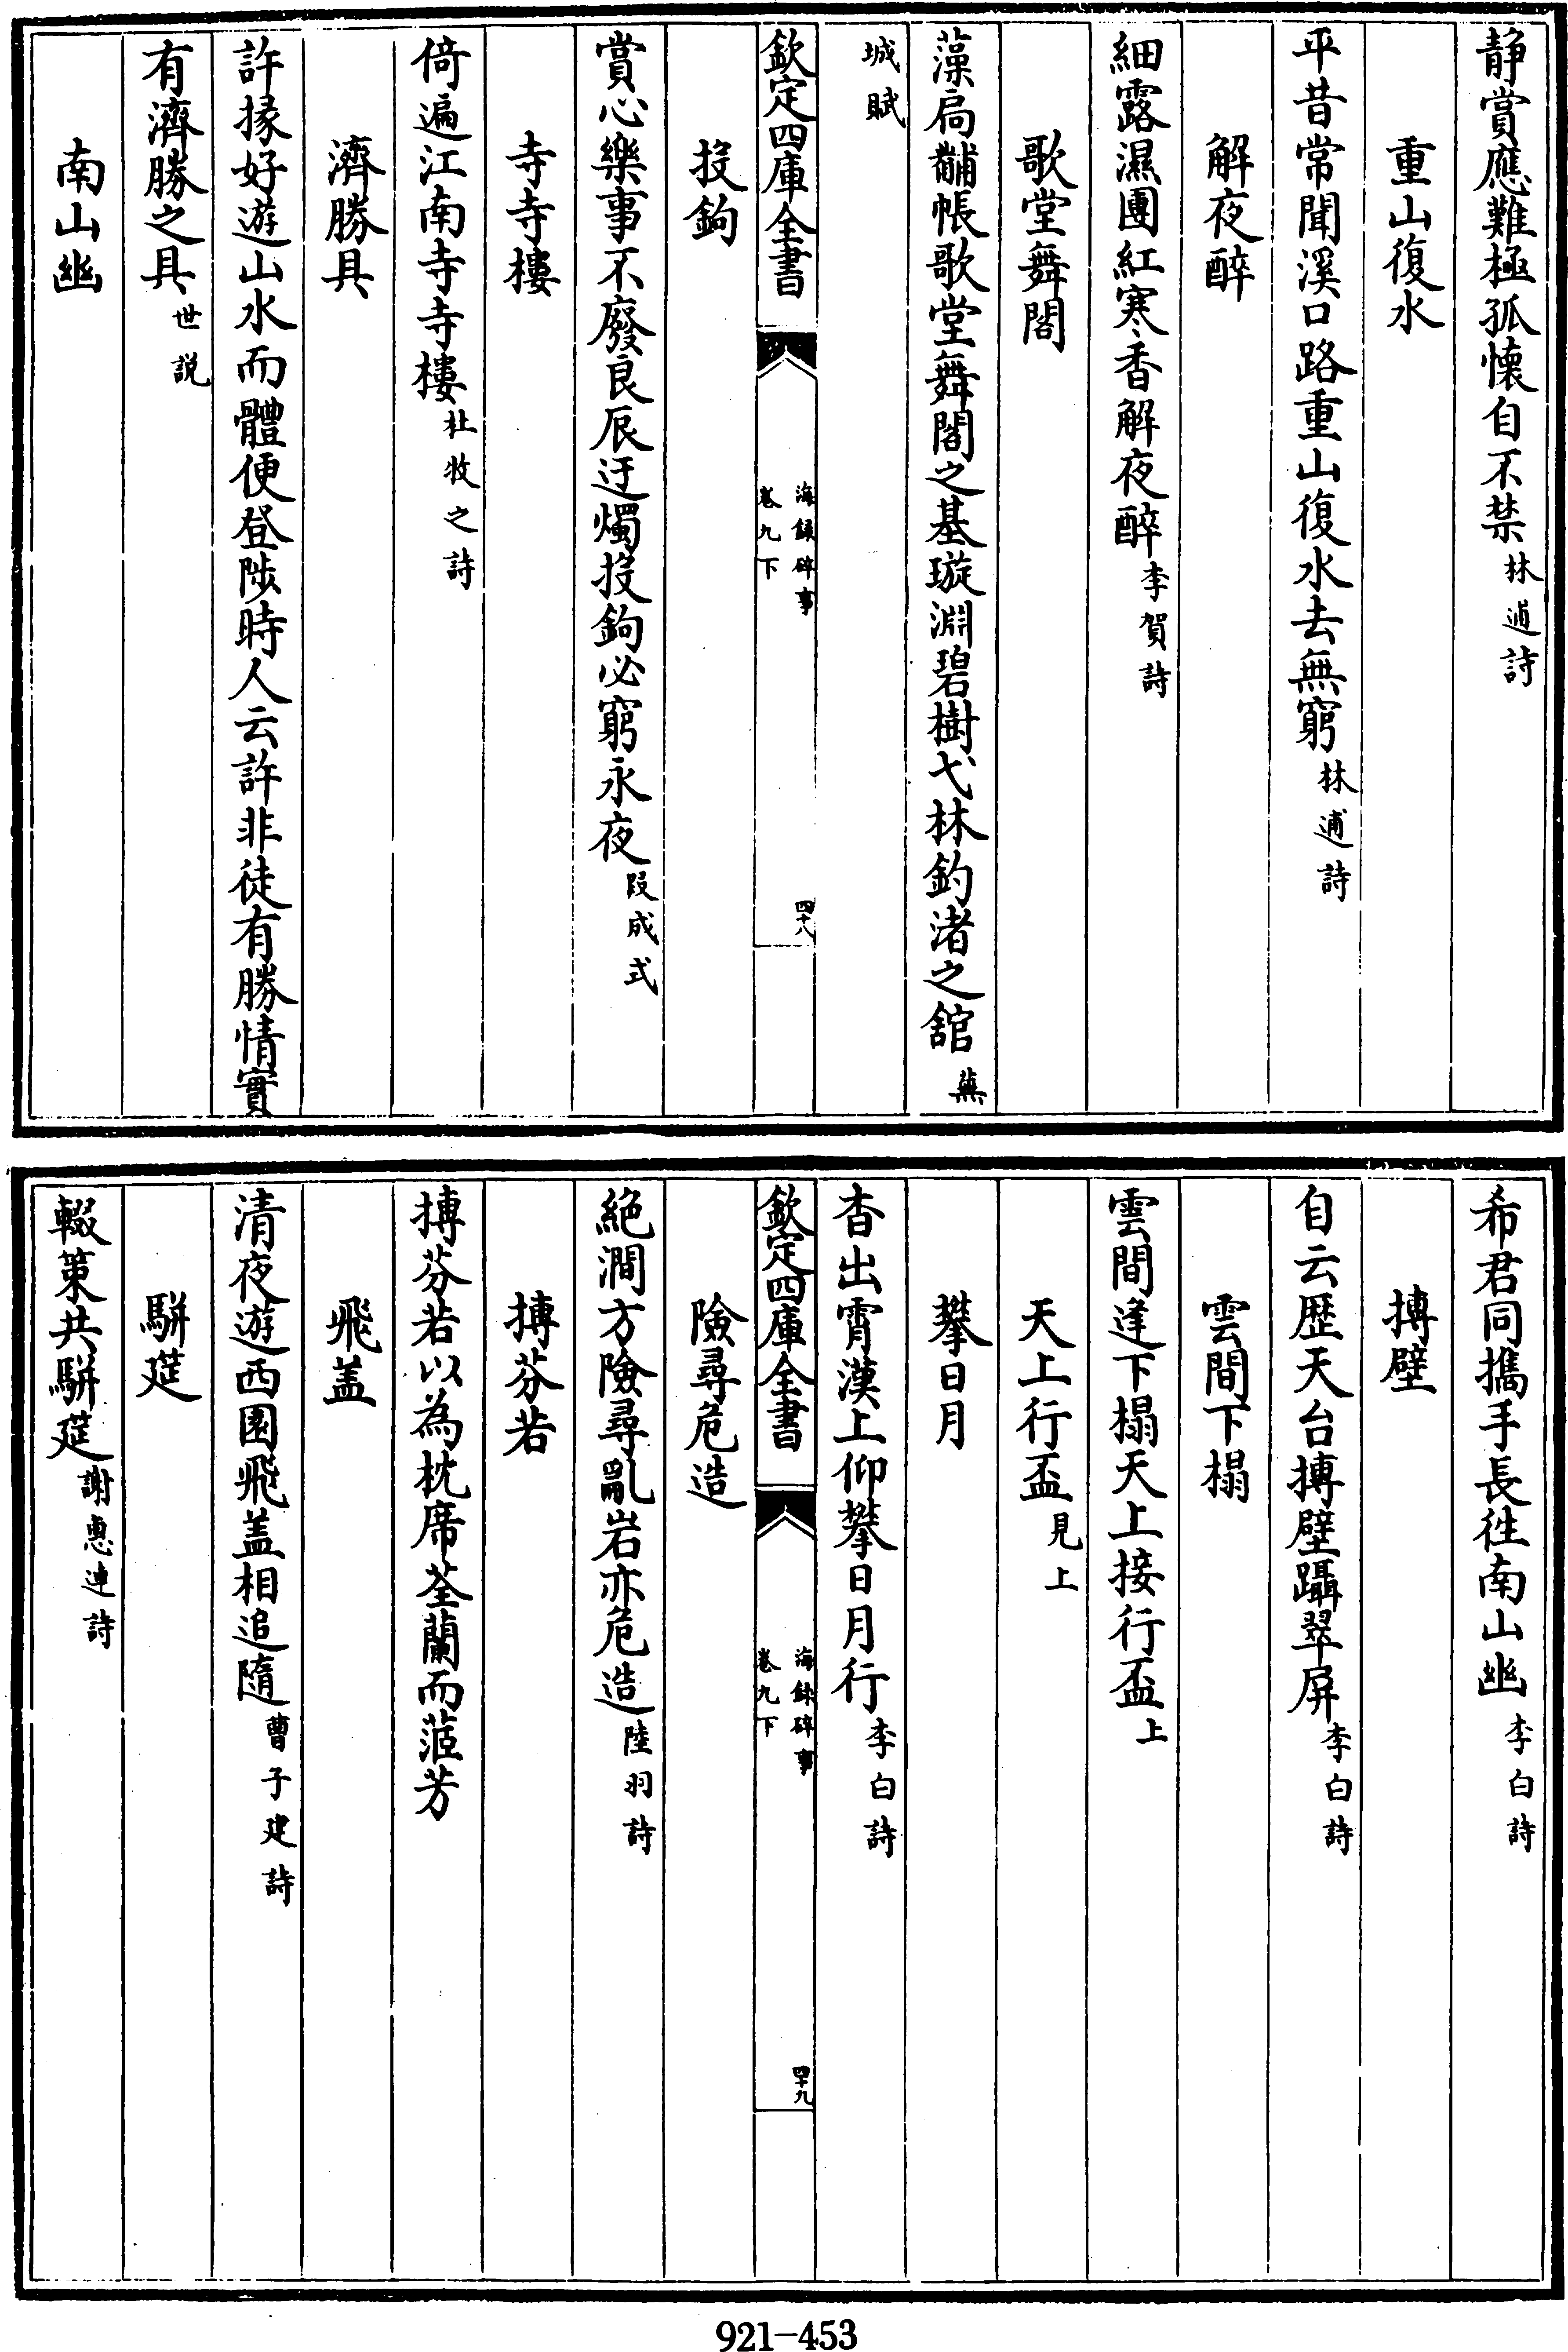 静賞應難極孤懐自不禁林逋詩
重山復水
平昔常聞溪口路重山復水去無窮林逋詩
解夜醉
細露濕團紅寒香解夜醉李賀詩
歌堂舞閣
藻扃黼帳歌堂舞閣之基璇淵碧樹弋林釣渚之館蕪
城賦
欽定四庫全書
海録碎事
卷九下
四十八
投鉤
賞心樂事不廢良辰迂燭投鉤必窮永夜段成式
寺寺樓
倚遍江南寺寺樓杜牧之詩
濟勝具
許掾好遊山水而體便登陟時人云許非徒有勝情實
有濟勝之具世説
南山幽
希君同攜手長徃南山幽李白詩
搏壁
自云歴天台搏壁躡翠屏李白詩
雲間下榻
雲間逢下榻天上接行盃上
天上行盃見上
攀日月
杳出霄漢上仰攀日月行李白詩
欽定四庫全書
海録碎事
卷九下
四十九
險尋危造
絶澗方險尋亂岩亦危造陸羽詩
搏芬若
搏芬若以為枕席荃蘭而茝芳
飛盖
清夜遊西園飛盖相追隨曹子建詩
駢筵
輟策共駢筵謝惠連詩
921-453